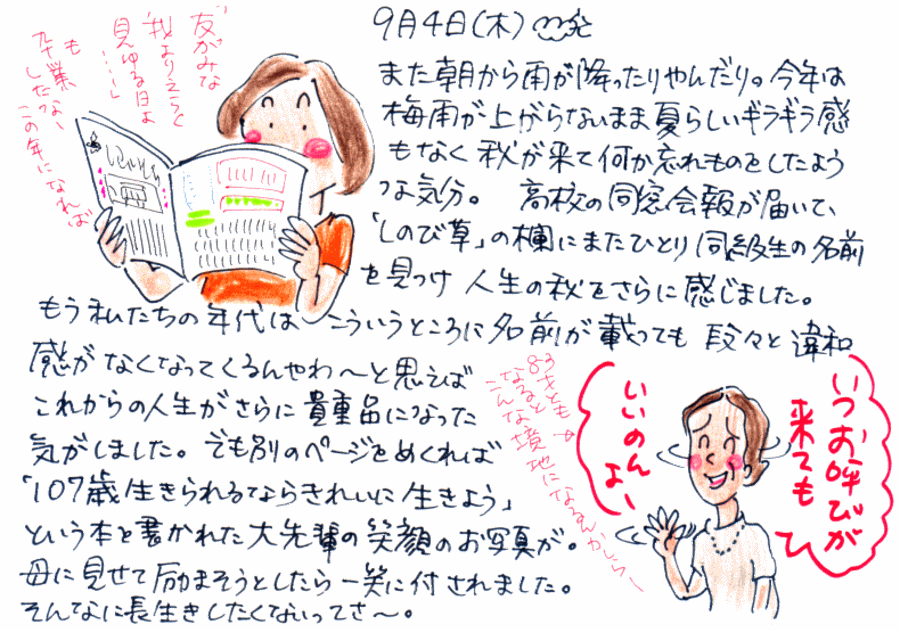 9月4日(木)
また朝から雨が降ったりやんだり。今年は
梅雨が上がらないまま夏らしいギラギラ感
もなく秋が来て何か忘れものをしたよう
な気分。 高校の同窓会報が届いて、
「しのび草」の欄にまたひとり同級生の名前
を見つけ人生の秋をさらに感じました。
もう私たちの年代は こういうところに名前が載っても 段々と違和
感がなくなってくるんやわ〜と思えば
これからの人生がさらに貴重品になった
気がしました。でも別のページをめくれば
「107歳生きられるならきれいに生きよう」
という本を書かれた大先輩の笑顔のお写真が。
母に見せて励まそうとしたら一笑に付されました。
そんなに長生きしたくないってさ〜。
友がみな
我よりえらく
見ゆる日よ
……」
も
卒業
したなー
この年になれば
83才とも
なると
こんな境地になるんかしらー
いつお呼びが
来ても
いいのんよー